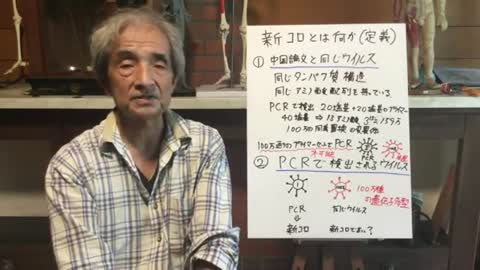 新コロとは何か(定義)
① 中国論文と同じウイルス
同じタンパク質構造
同じアミノ酸配列を持っている
PCRで検出 20塩基+20塩基のプライマー
40塩基 ⇒ 13アミノ酸
100万の同義置換の変異体
PCR
② PCRで検出されるウイルス
100万種
の遺伝子多型
PCR 同じウイルス
新コロ 新コロでない?